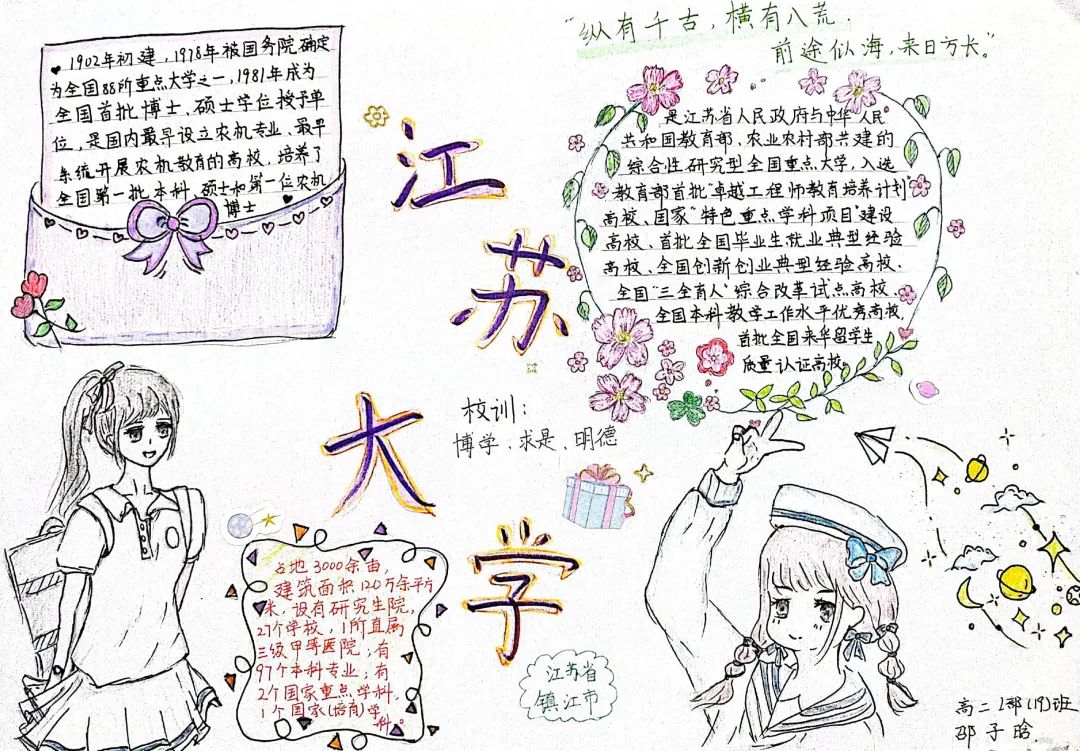 "纵有千古，横有八荒．
前途似海，来日方长。"
1902年初建，1978年被国务院确定
为全国88所重点大学之一，1981年成为
全国首批博士、硕士学位授予单
位，是国内最早设立农机专业、最早
系统开展农机教育的高校，培养了
全国第一批本科、硕士和第一位农机
博士
江
苏
大
学
是江苏省人民政府与中华人民
共和国教育部、农业农村部共建的
综合性研究型全国重点大学，入选
教育部首批"卓越工程师教育培养计划"
高校、国家"特色重点学科项目"建设
高校、首批全国毕业生就业典型经验
高校、全国创新创业典型经验高校、
全国"三全育人"综合改革试点高校、
全国本科教学工作水平优秀高校，
首批全国来华留学生
质量认证高校。
校训：
博学、求是、明德
占地3000余亩，
建筑面积120万余平方
米，设有研究生院，
27个学校，1所直属
三级甲等医院；有
97个本科专业；有
2个国家重点学科，
1个国家(培育)学
科。
江苏省
镇江市
高二1部(19)班
邵子晗．